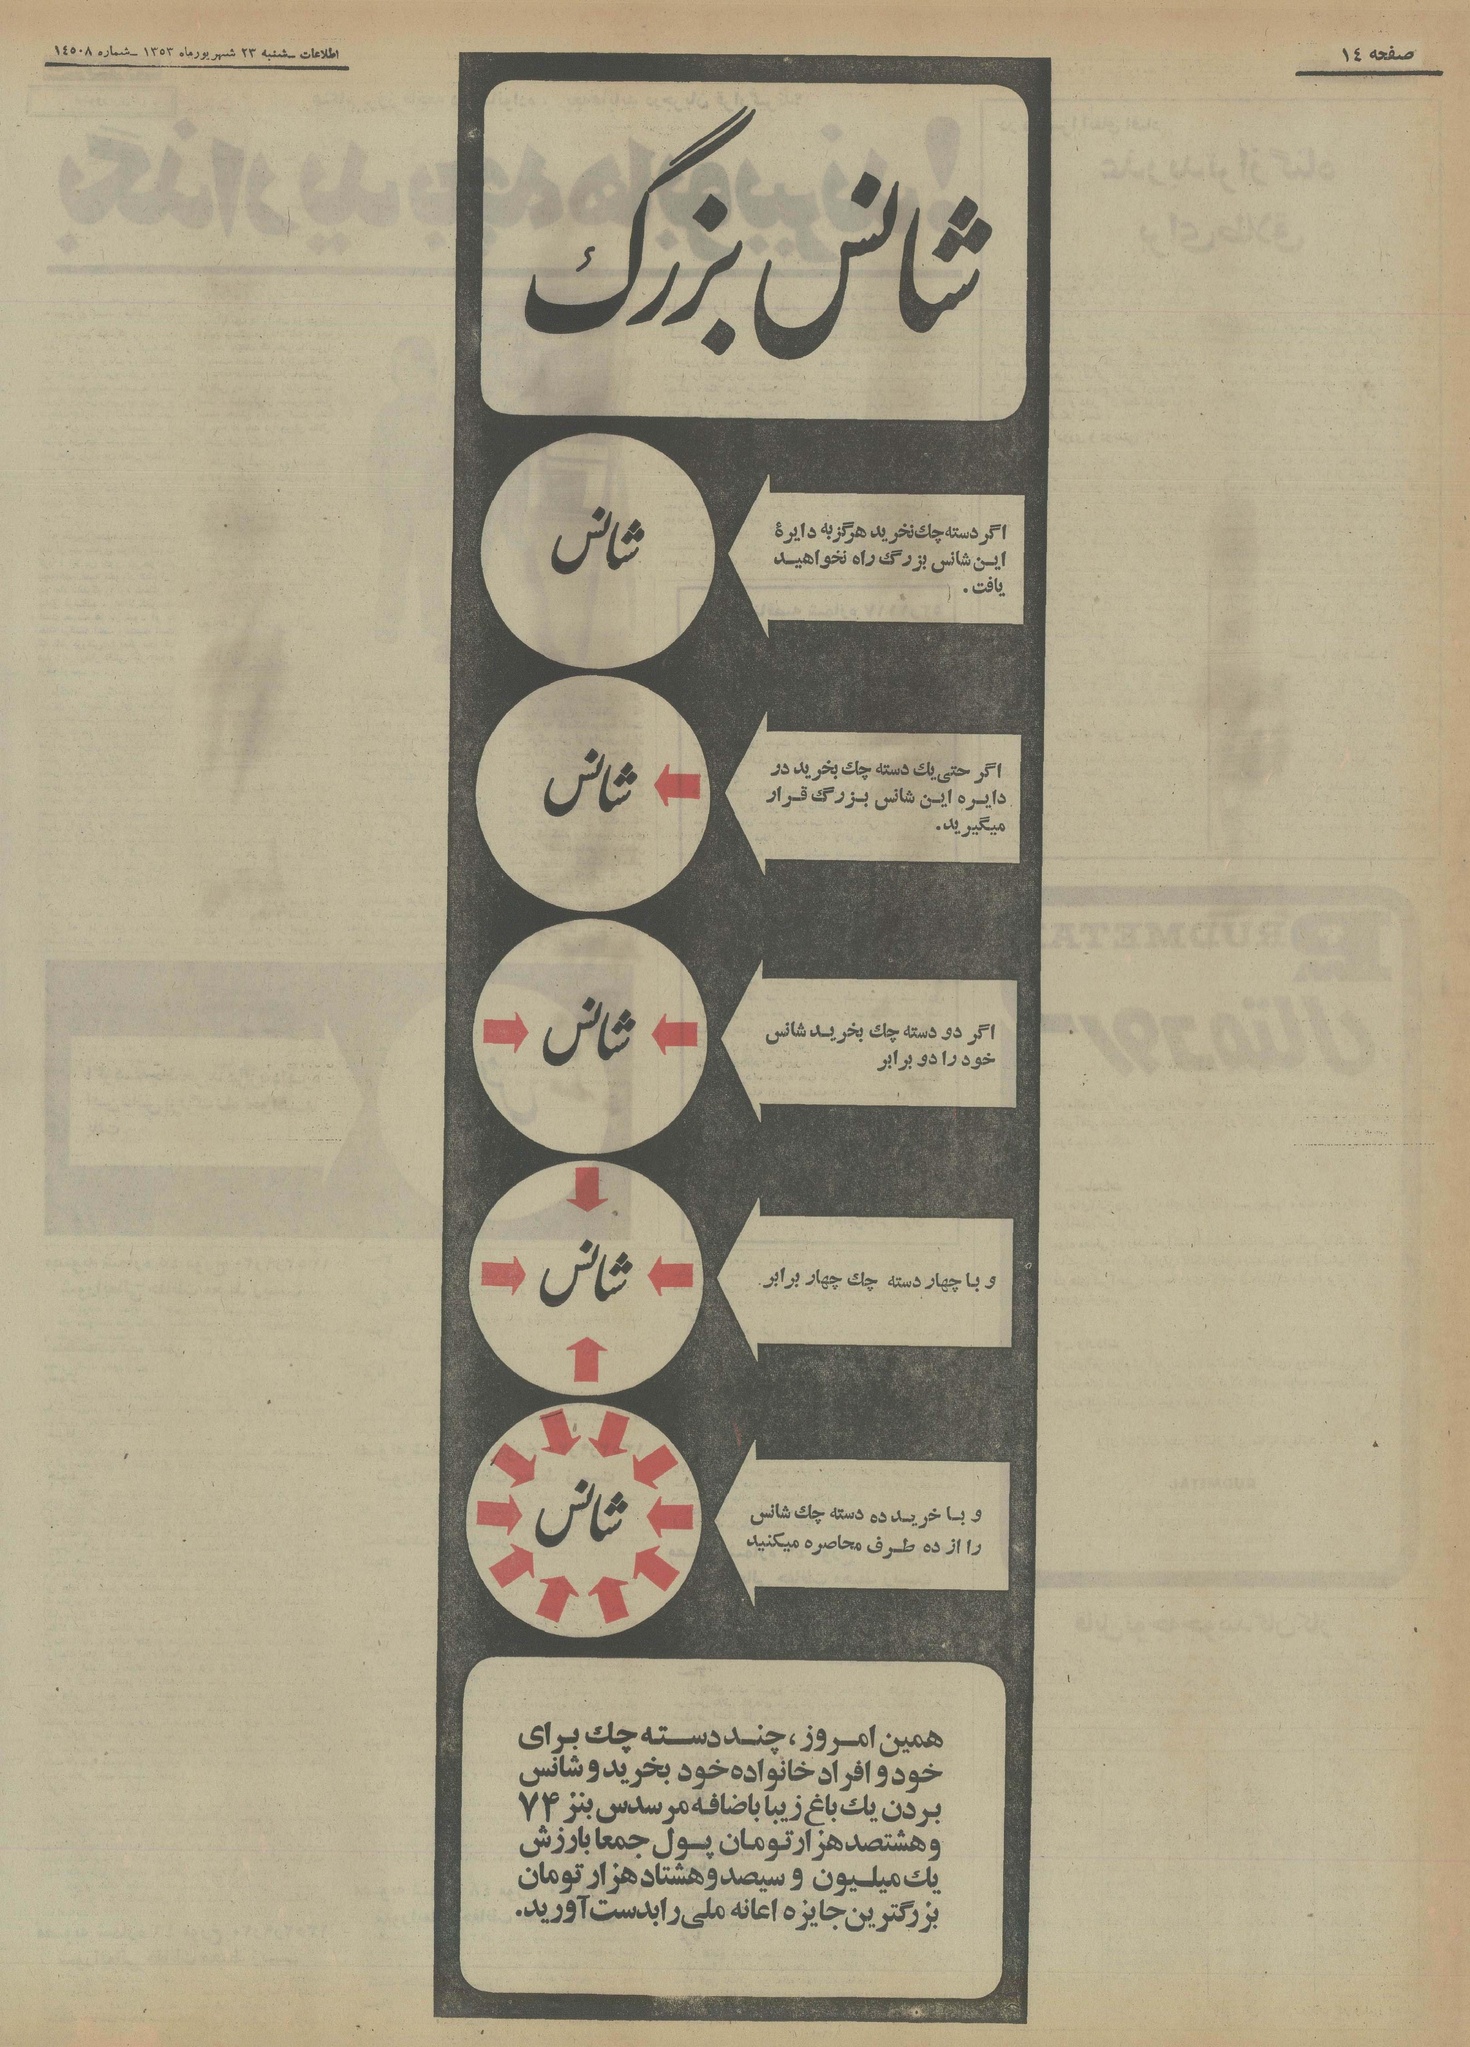 صفحه ١٤
اطلاعات ـ شنبه ٢٣ شهریورماه ١٣٥٣ ـ شماره ١٤٥٠٨
شانس بزرگ
اگر دسته چك نخرید هرگز به دایرهٔ
این شانس بزرگ راه نخواهید
یافت.
شانس
اگر حتی یك دسته چك بخرید در
دایره این شانس بزرگ قرار
میگیرید.
شانس
اگر دو دسته چك بخرید شانس
خود را دو برابر
شانس
و با چهار دسته چك چهار برابر
شانس
و با خرید ده دسته چك شانس
را از ده طرف محاصره میکنید
شانس
همین امروز، چند دسته چك برای
خود و افراد خانواده خود بخرید و شانس
بردن یك باغ زیبا باضافه مرسدس بنز ۷۴
و هشتصد هزار تومان پول جمعا بارزش
یك میلیون و سیصد و هشتاد هزار تومان
بزرگترین جایزه اعانه ملی را بدست آورید.